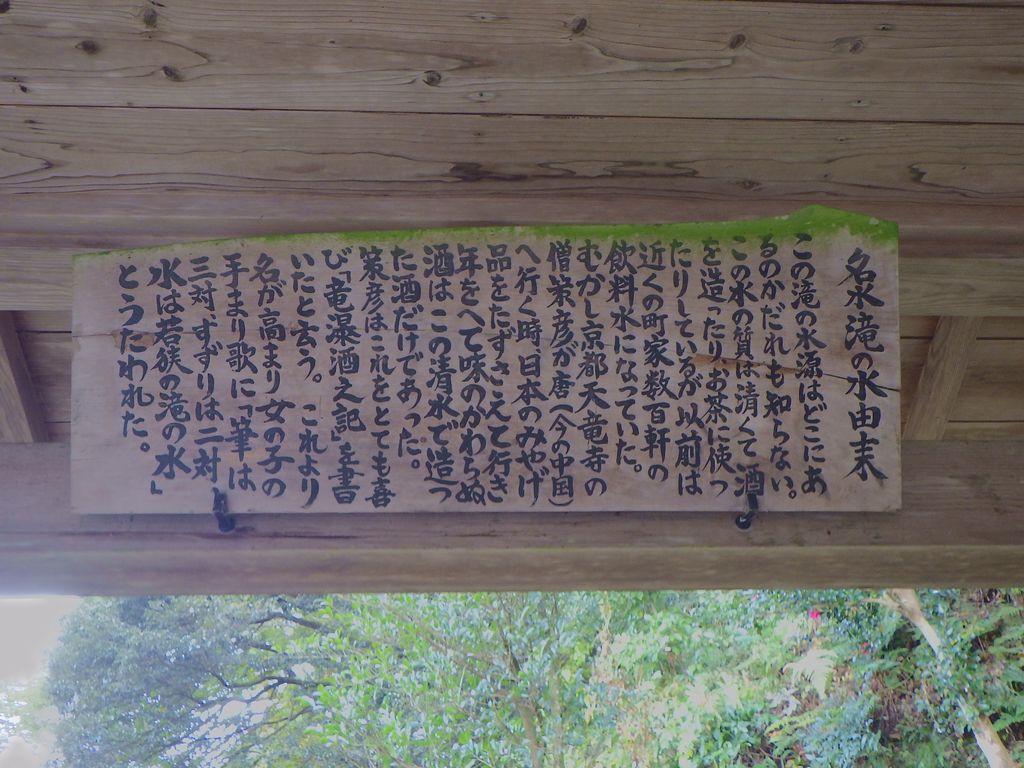 名水滝の水由末
この滝の水源はどこにあ
るのかだれも知らない。
この水の質は清くて酒
を造ったりお茶に使っ
たりしているが以前は
近くの町家数百軒の
飲料水になっていた。
むかし京都天竜寺の
僧策彦が唐(今の中国)
へ行く時、日本のみやげ
品をたずさえて行き
年をへて味のかわらぬ
酒はこの清水で造っ
た酒だけであった。
策彦はこれをとても喜
び「竜瀑酒之記」を書
いたと云う。これより
名が高まり女の子の
手まり歌に「筆は
三対すずりは二対
水は若狭の滝の水」
とうたわれた。